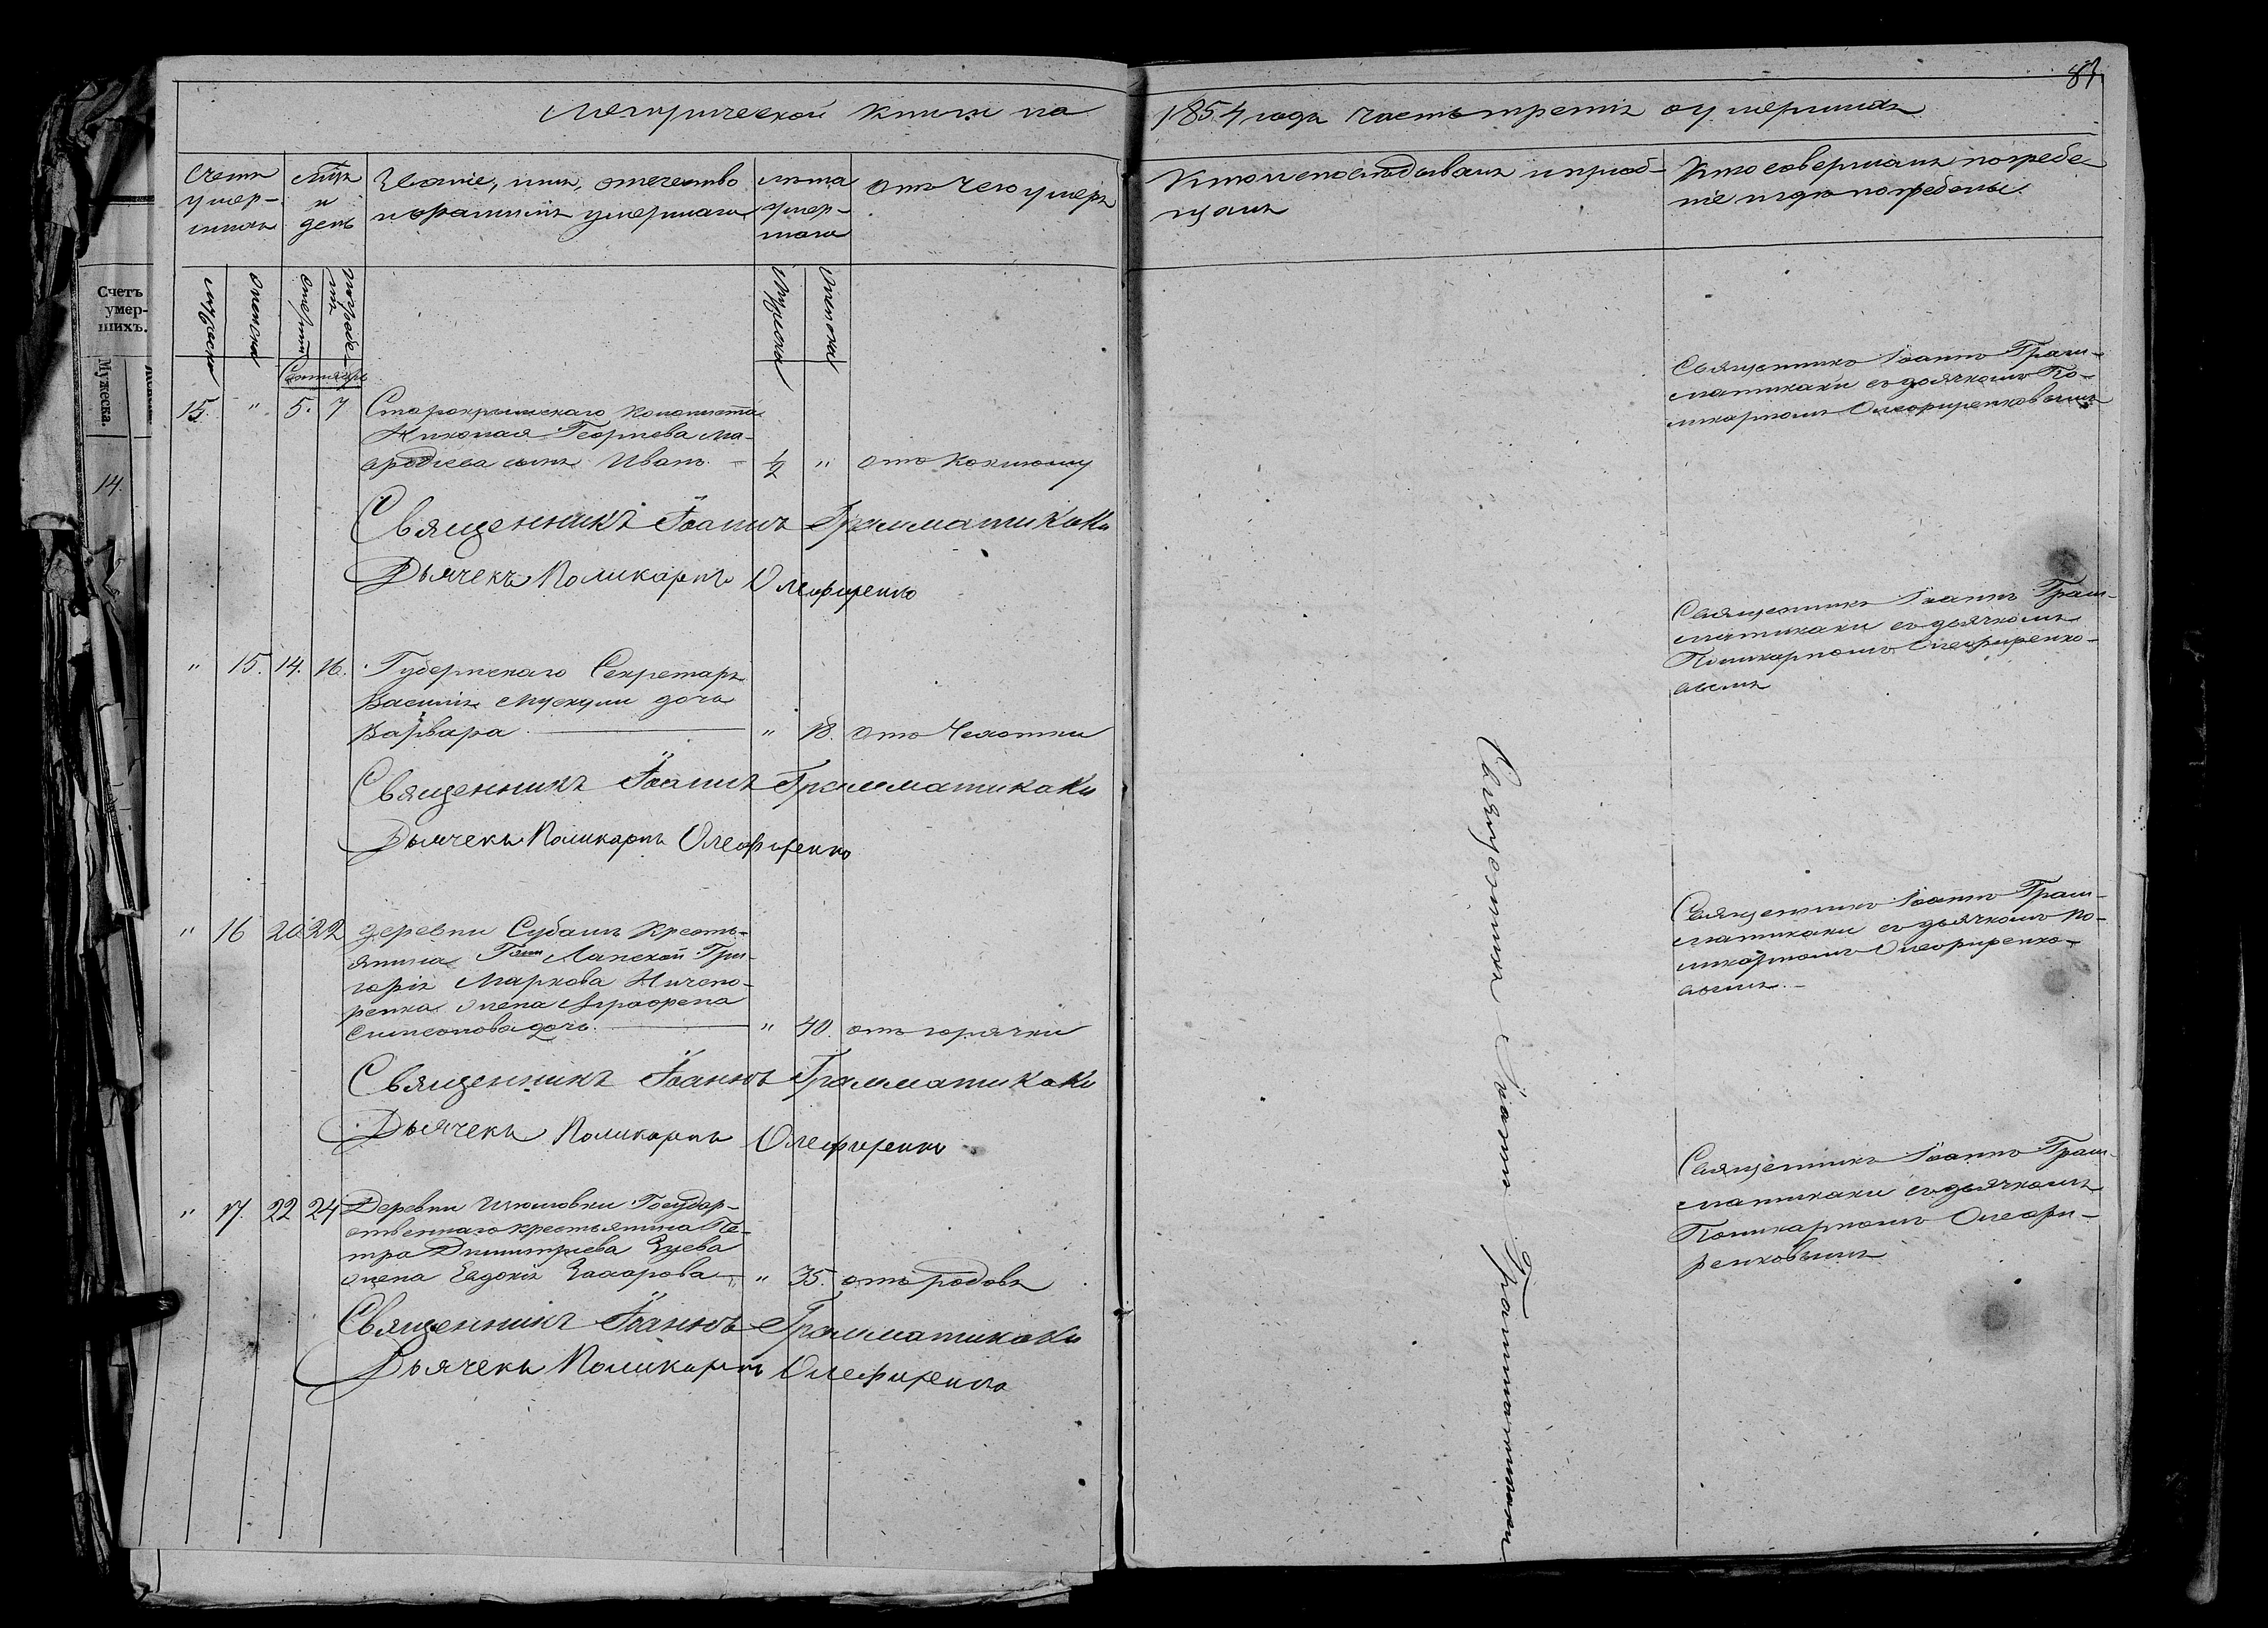 83
Метрической книги на 1854 годъ часть третія оумершихъ
Счетъ
умер-
шихъ
Мцъ
и
день
Званіе, имя, отечество
и фамилія умершаго
лѣта
умер-
шаго
отъ чего умеръ
Кто исповѣдывалъ и пріоб-
щалъ
Кто совершалъ погребе-
ніе и гдѣ погребены.
мужеска
женска
смерти
погребе-
нія
мужеска
женска
Сентябрь
15. " 5. 7 Старокрымскаго колониста
Николая Георгіева
сынъ Иванъ. - 1/2 " отъ коклюшу
Священникъ Іоаннъ Грам-
матикаки съ дьячкомъ По-
ликарпомъ Олефиренковымъ
Священникъ Іоаннъ Грамматикаки
Дьячекъ Поликарпъ Олефиренко
" 15. 14. 16. Губернскаго Секретаря
Василія Мускули дочь
Варвара " 18. отъ Чахотки
Священникъ Іоаннъ Грам-
матикаки съ дьячкомъ
Поликарпомъ Олефиренко-
вымъ
Священникъ Іоаннъ Грамматикаки
Дьячекъ Поликарпъ Олефиренко
" 16 20. 22 деревни Субашъ кресть-
янина Гжи Ланской Гри-
горія Маркова Ничепо-
ренка жена Агрофена
Симеонова дочь. " 40. отъ горячки
Священникъ Іоаннъ Грам-
матикаки съ дьячкомъ По-
ликарпомъ Олефиренко-
вымъ. -
Священникъ Іоаннъ Грамматикаки
Дьячекъ Поликарпъ Олефиренко
" 17. 22 24 Деревни Государ-
ственнаго крестьянина Пе-
тра Димитріева Зуева
жена Евдокія Захарова " 35. отъ родовъ
Священникъ Іоаннъ Грам-
матикаки съ дьячкомъ
Поликарпомъ Олефи-
ренковымъ
Священникъ Іоаннъ Грамматикаки
Дьячекъ Поликарпъ Олефиренко
Священникъ Іоаннъ Грамматикаки
Счетъ
умер-
шихъ.
Мужеска.
14.